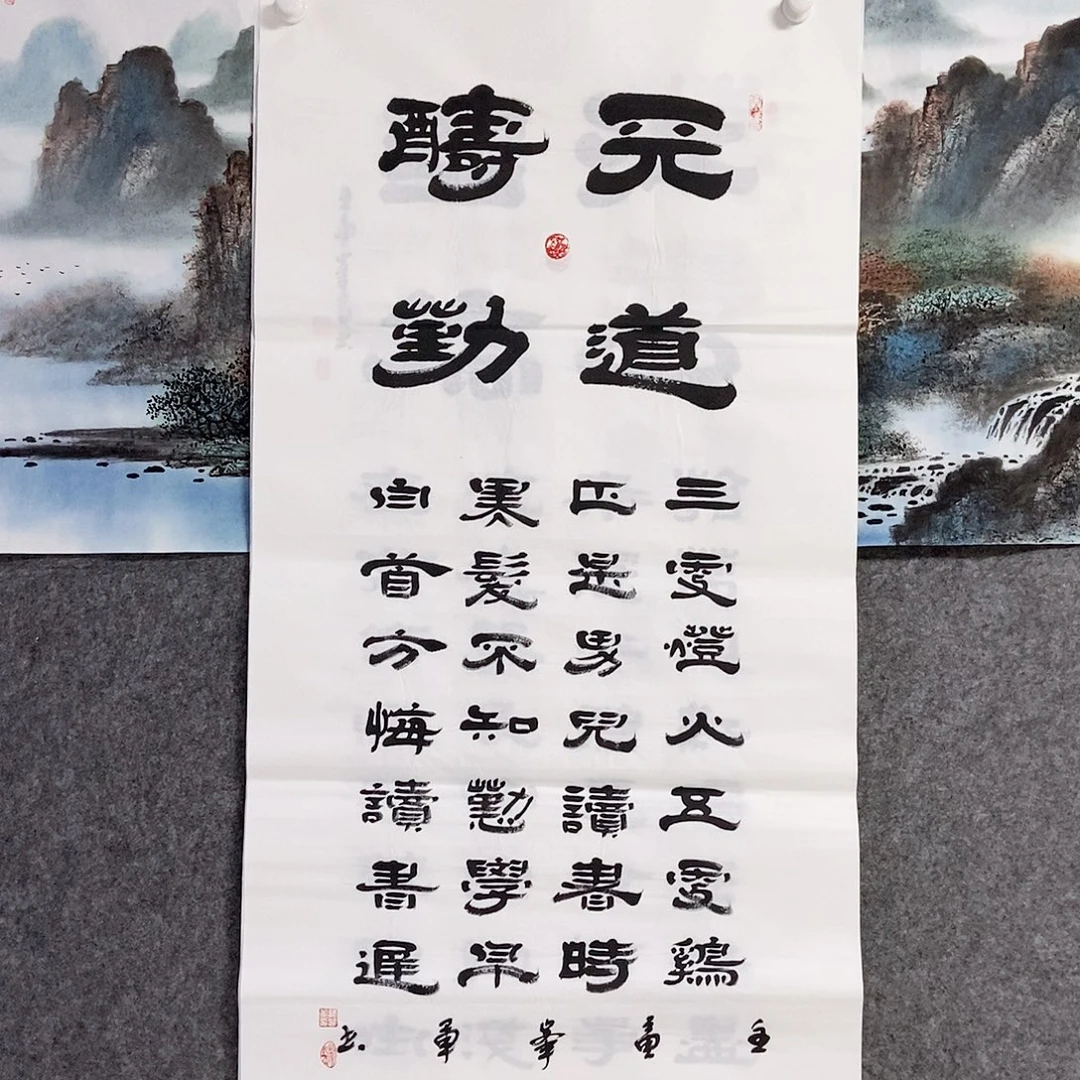 天道
醻勤
三更燈火五更鷄
正是男兒讀書時
黑髮不知懃學早
白首方悔讀書遲
峯軍书